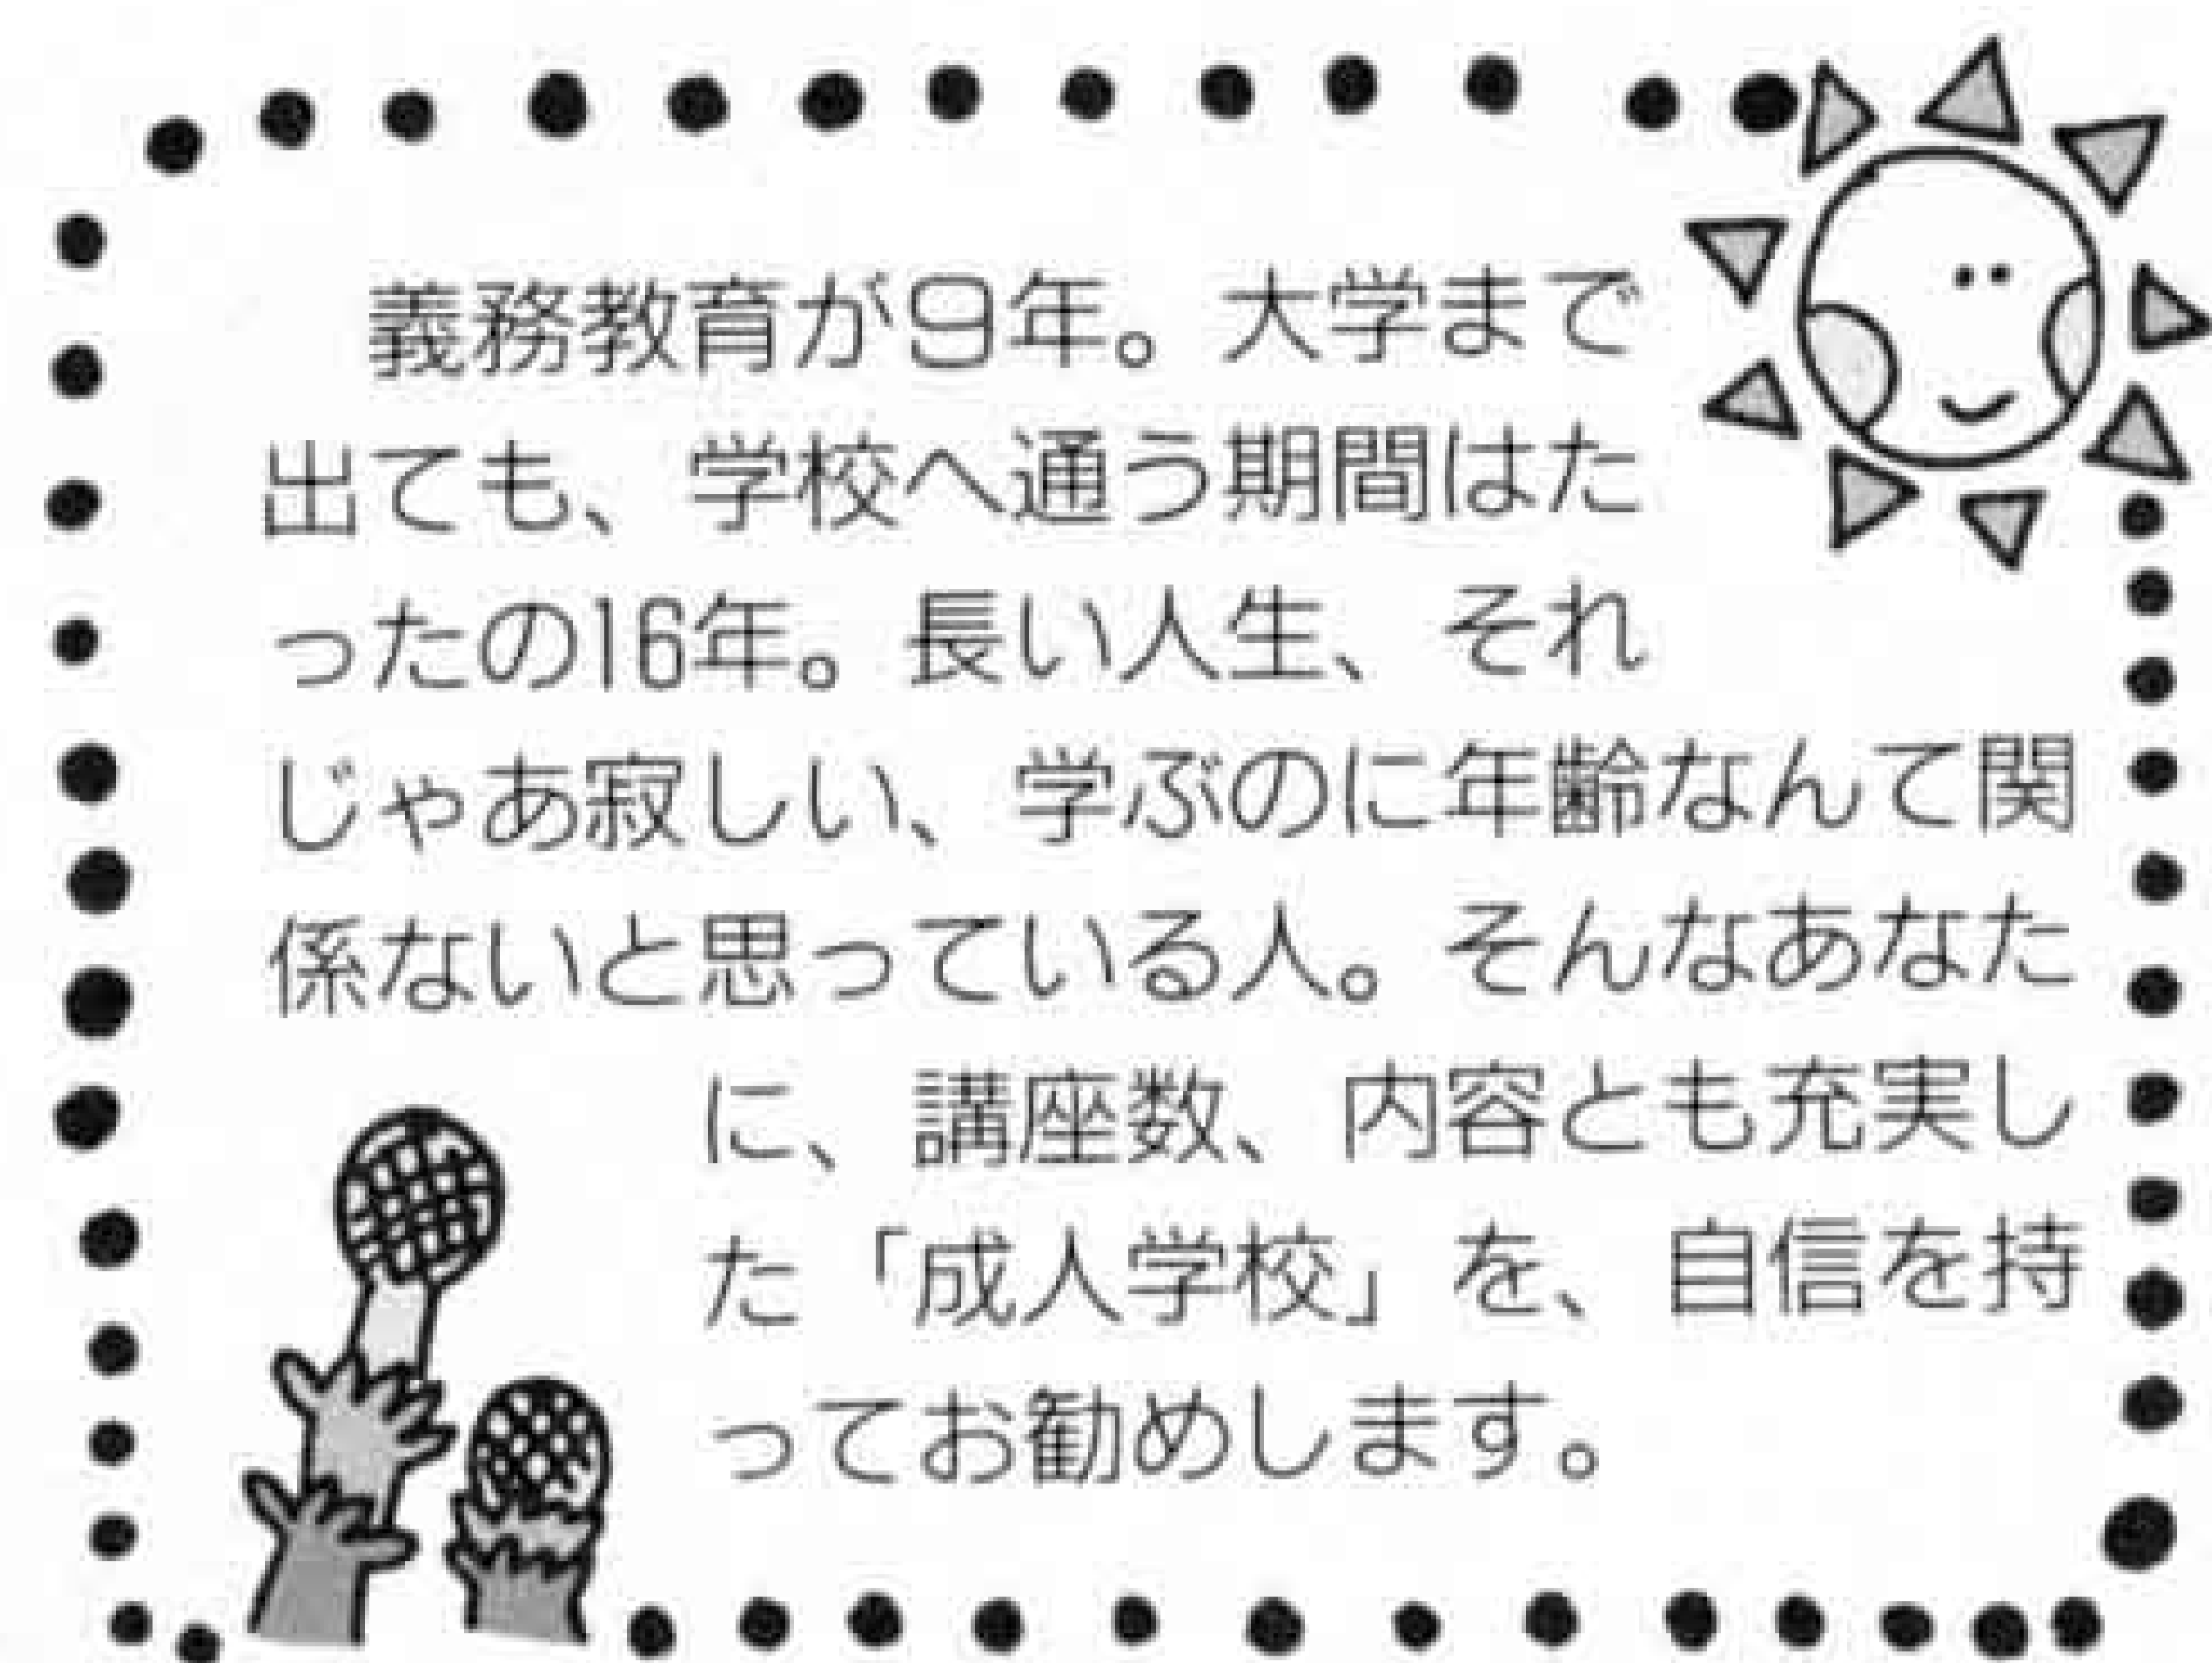 義務教育が9年。大学まで
出ても、学校へ通う期間はた
ったの16年。長い人生、それ
じゃあ寂しい、学ぶのに年齢なんて関
係ないと思っている人。そんなあなた
に、講座数、内容とも充実し
た「成人学校」を、自信を持
ってお勧めします。